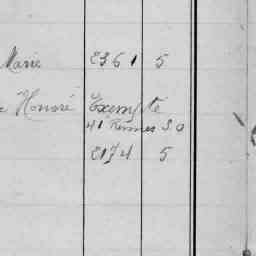 Marie E361 5
Honoré Exempte
41 Rennes S.O
E174 5